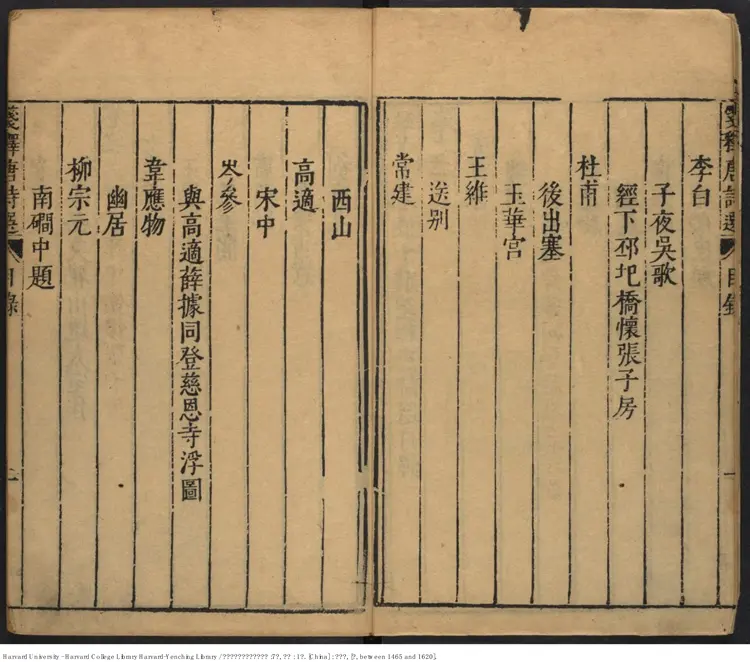 李白
子夜吳歌
經下邳圯橋懷張子房
杜甫
後出塞
玉華宮
王維
送别
常建
西山
高適
宋中
岑參
與高適薛據同登慈恩寺浮圖
韋應物
幽居
柳宗元
南磵中題
箋釋唐詩選 目錄
Harvard University - Harvard College Library Harvard-Yenching Library / ???????????? : 7?, ?? : 1?. [China] : ???, [?, between 1465 and 1620].